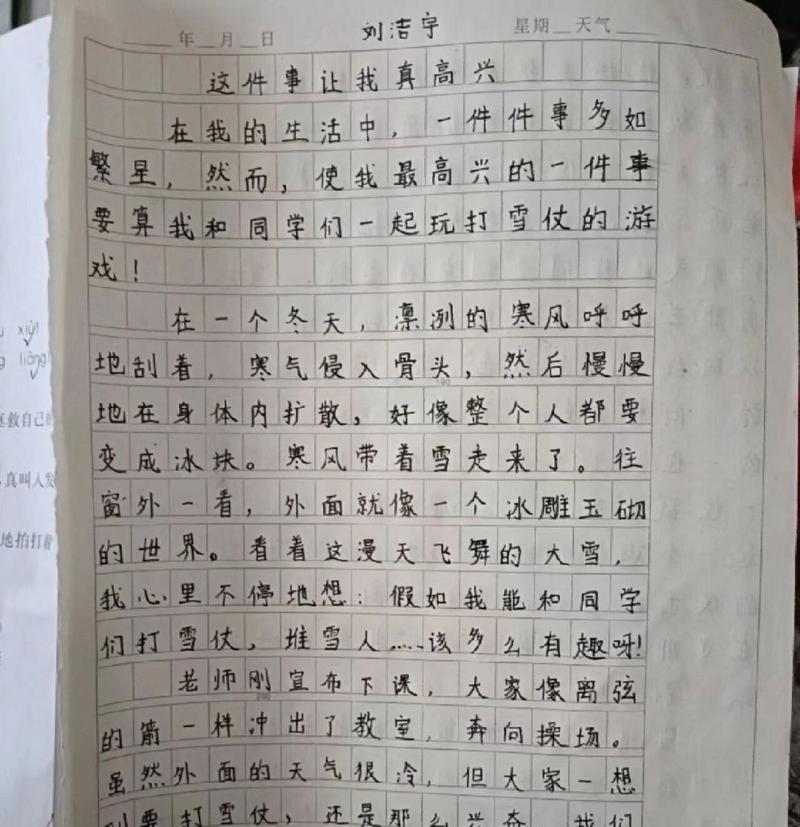 年 月 日 刘洁宇 星期 天气
这件事让我真高兴
在我的生活中，一件件事多如
繁星，然而，使我最高兴的一件事
要算我和同学们一起玩打雪仗的游
戏！
在一个冬天，凛冽的寒风呼呼
地刮着，寒气侵入骨头，然后慢慢
100
地在身体内扩散，好像整个人都要
变成冰块。寒风带着雪走来了。往
窗外一看，外面就像一个冰雕玉砌
的世界。看着这漫天飞舞的大雪，
我心里不停地想：假如我能和同学
们打雪仗，堆雪人……该多么有趣呀！
老师刚宣布下课，大家像离弦
200
的箭一样冲出了教室，奔向操场。
虽然外面的天气很冷，但大家一想
到要打雪仗，还是那么兴奋。我们
xiù
liàng
拯救自己的
真叫人发
地拍打